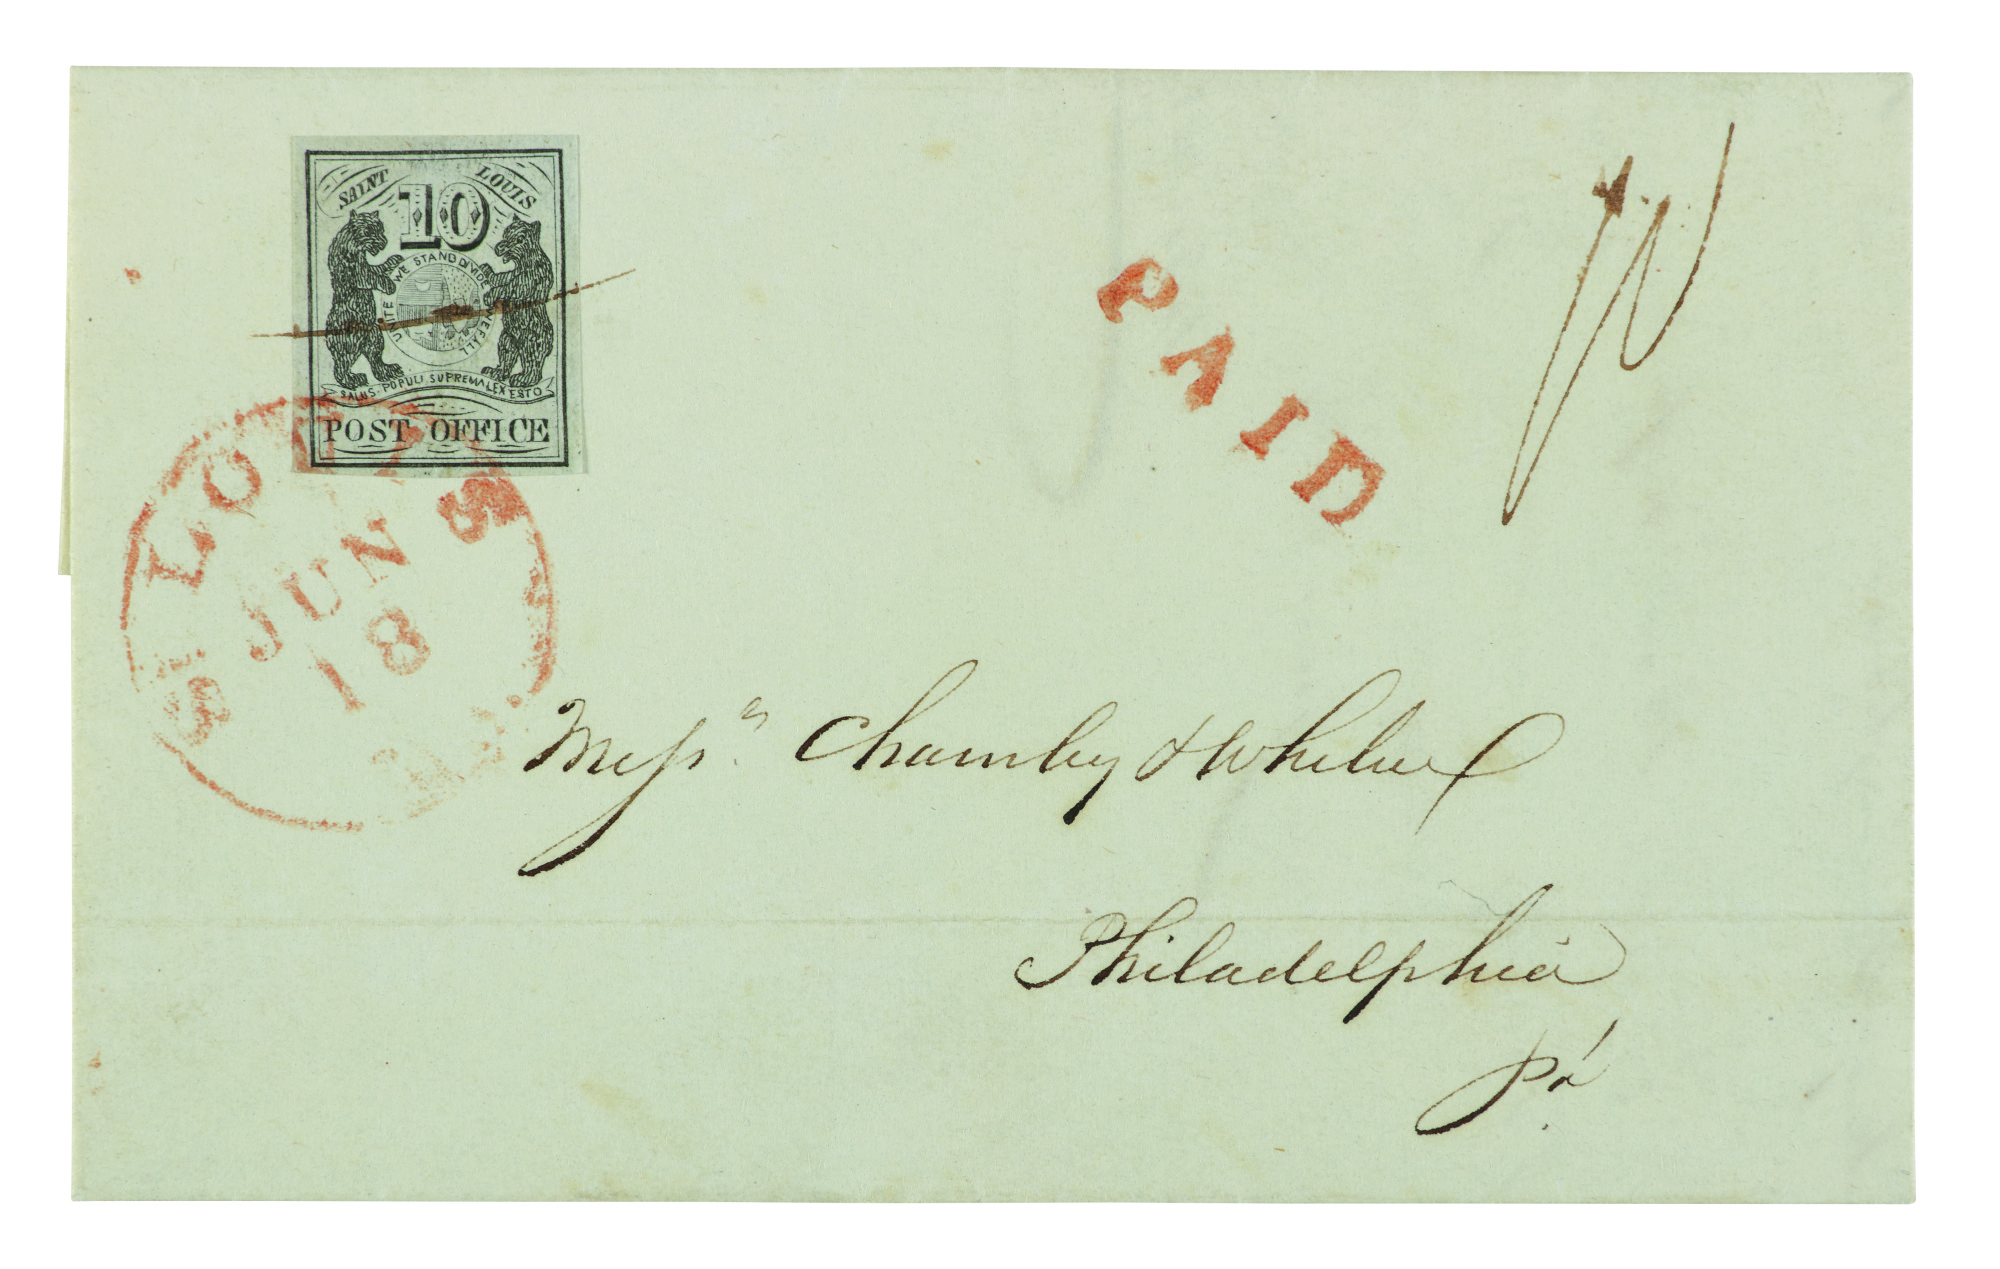 SAINT LOUIS
10
UNITE WE STAND DIVIDE WE FALL
SALUS POPULI SUPREMA LEX ESTO
POST OFFICE
ST LOUIS
JUN
18
Mo.
PAID
Messrs Charnley &
Philadelphia
Pa